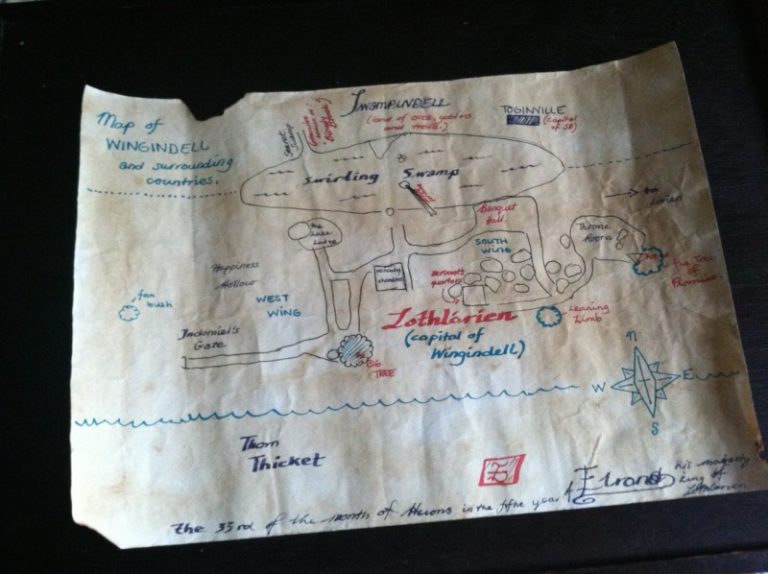 Map of
WINGINDELL
and surrounding
countries.
Secret
Swamp
SWAMPINDELL
(land of orcs, goblins
and trolls.)
TOGINVILLE
(capital
of SD)
Swirling Swamp
to
Lorien
The Lake
Lodge
Banquet
Hall
Throne
Room
SOUTH
WING
The Tree
of
Promise
Happiness
Hollow
servants
quarters
fan
bush
WEST
WING
Lothlárien
(capital of
Wingindell)
Leaning
Limb
Indomiel's
Gate
BIG
TREE
n
W
E
S
Thorn
Thicket
The 33rd of the month of Herons in the fifth year of
Elrond
his majesty
king of